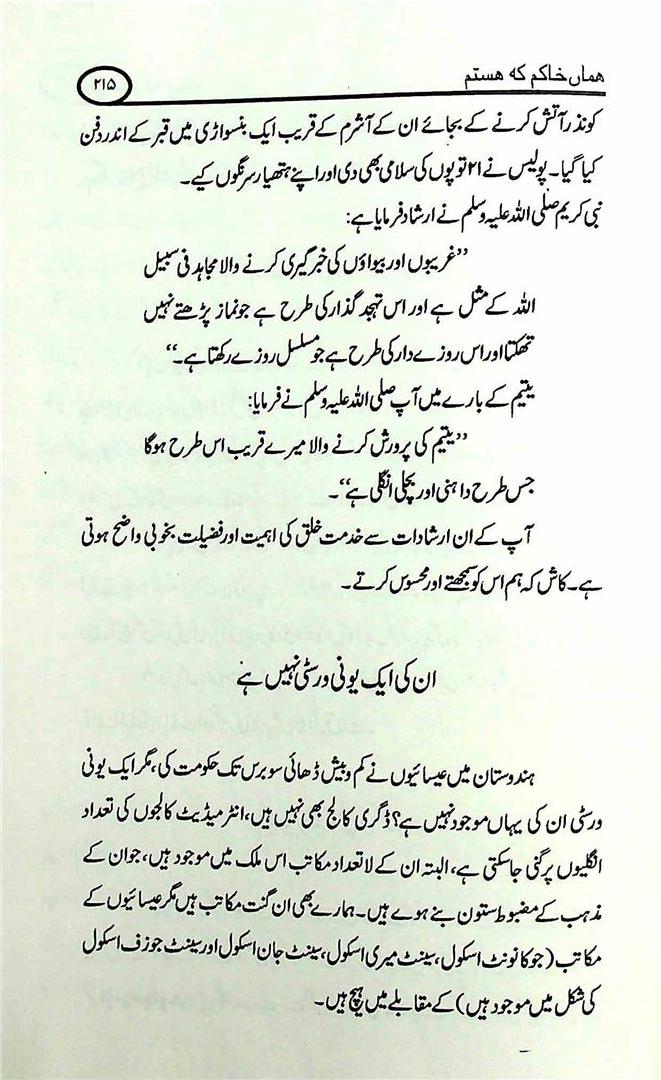 ھماں خاکم کہ ھستم
۲۱۵
کو نذر آتش کرنے کے بجائے ان کے آشرم کے قریب ایک بنسواڑی میں قبر کے اندر دفن
کیا گیا۔ پولیس نے ۲۱ توپوں کی سلامی بھی دی اور اپنے ہتھیار سرنگوں کیے۔
نبی کریم صلی اللہ علیہ وسلم نے ارشاد فرمایا ہے:
”غریبوں اور بیواؤں کی خبر گیری کرنے والا مجاہد فی سبیل
اللہ کے مثل ہے اور اس تہجد گذار کی طرح ہے جو نماز پڑھتے نہیں
تھکتا اور اس روزے دار کی طرح ہے جو مسلسل روزے رکھتا ہے۔“
یتیم کے بارے میں آپ صلی اللہ علیہ وسلم نے فرمایا:
”یتیم کی پرورش کرنے والا میرے قریب اس طرح ہوگا
جس طرح داہنی اور بچلی انگلی ہے“۔
آپ کے ان ارشادات سے خدمت خلق کی اہمیت اور فضیلت بخوبی واضح ہوتی
ہے۔ کاش کہ ہم اس کو سمجھتے اور محسوس کرتے۔
ان کی ایک یونی ورسٹی نہیں ہے
ہندوستان میں عیسائیوں نے کم و بیش ڈھائی سو برس تک حکومت کی، مگر ایک یونی
ورسٹی ان کی یہاں موجود نہیں ہے؟ ڈگری کالج بھی نہیں ہیں، انٹرمیڈیٹ کالجوں کی تعداد
انگلیوں پر گنی جاسکتی ہے، البتہ ان کے لاتعداد مکاتب اس ملک میں موجود ہیں، جو ان کے
مذہب کے مضبوط ستون بنے ہوے ہیں۔ ہمارے بھی ان گنت مکاتب ہیں مگر عیسائیوں کے
مکاتب (جو کانونٹ اسکول، سینٹ میری اسکول، سینٹ جان اسکول اور سینٹ جوزف اسکول
کی شکل میں موجود ہیں) کے مقابلے میں ہیچ ہیں۔